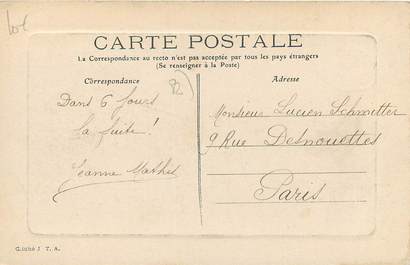 lot
CARTE POSTALE
La Correspondance au recto n'est pas acceptée par tous les pays étrangers
(Se renseigner à la Poste)
Correspondance
Adresse
82
Dans 6 jours
la fuite!
Jeanne Mathes
Monsieur Lucien Schmitter
9 Rue Desnouettes
Paris
Cliché J T. A.